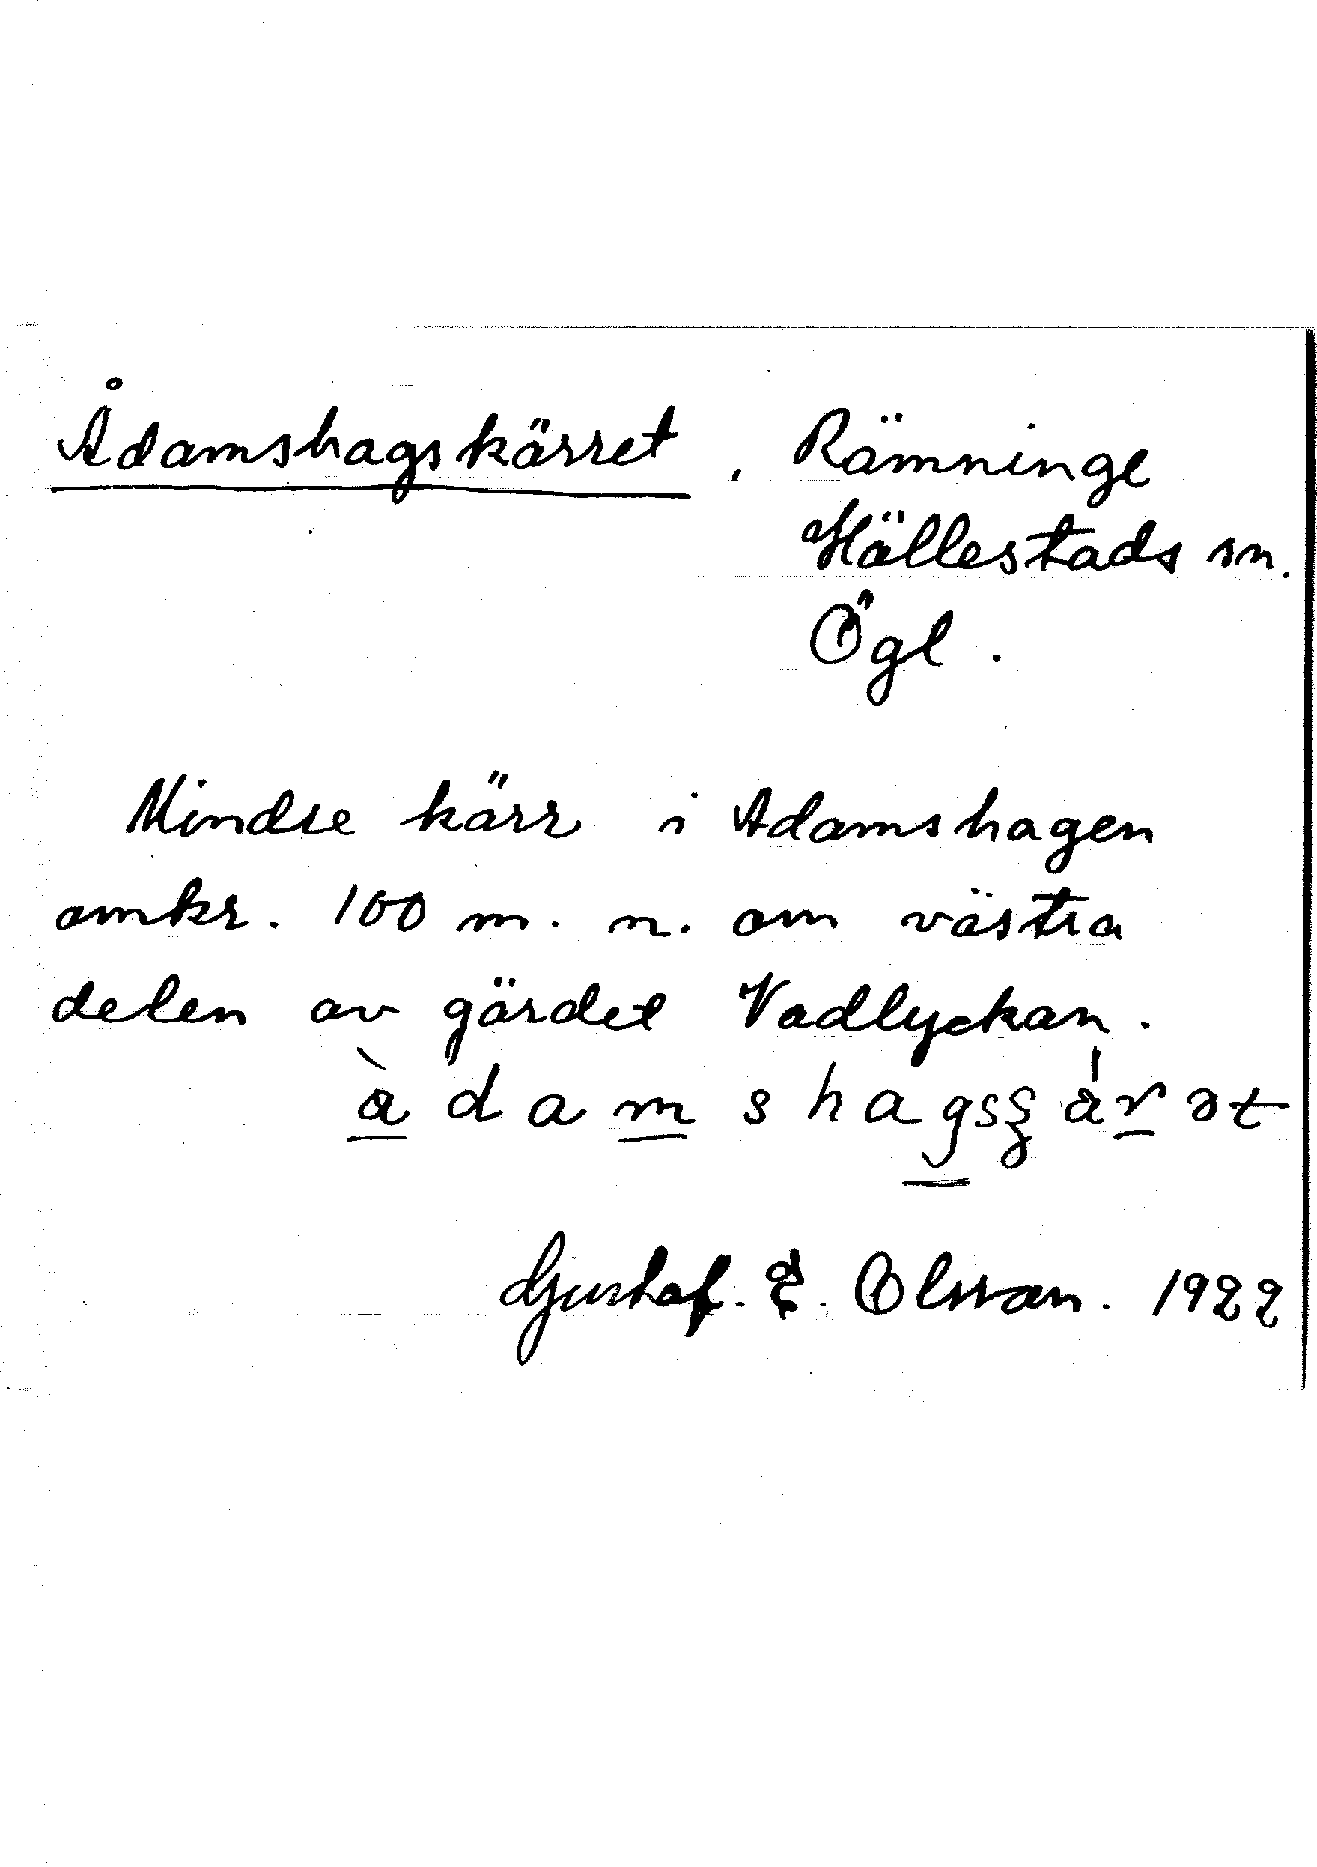 Ådamshagskärret. Rämninge
Hällestads sn.
Ögl.
Mindre kärr i Adamshagen
omkr. 100 m. n. om västra
delen av gärdet Vadlyckan.
Gustaf. E. Olsson. 1922